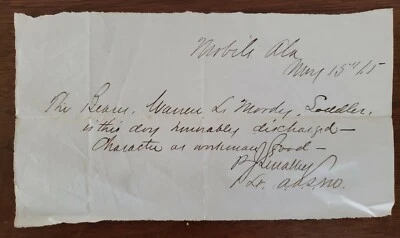 Mobile Ala
May 15th 65
The Bearer, Warren L. Moody, Saddler,
is this day honorably discharged —
Character as workman good —
Lt.